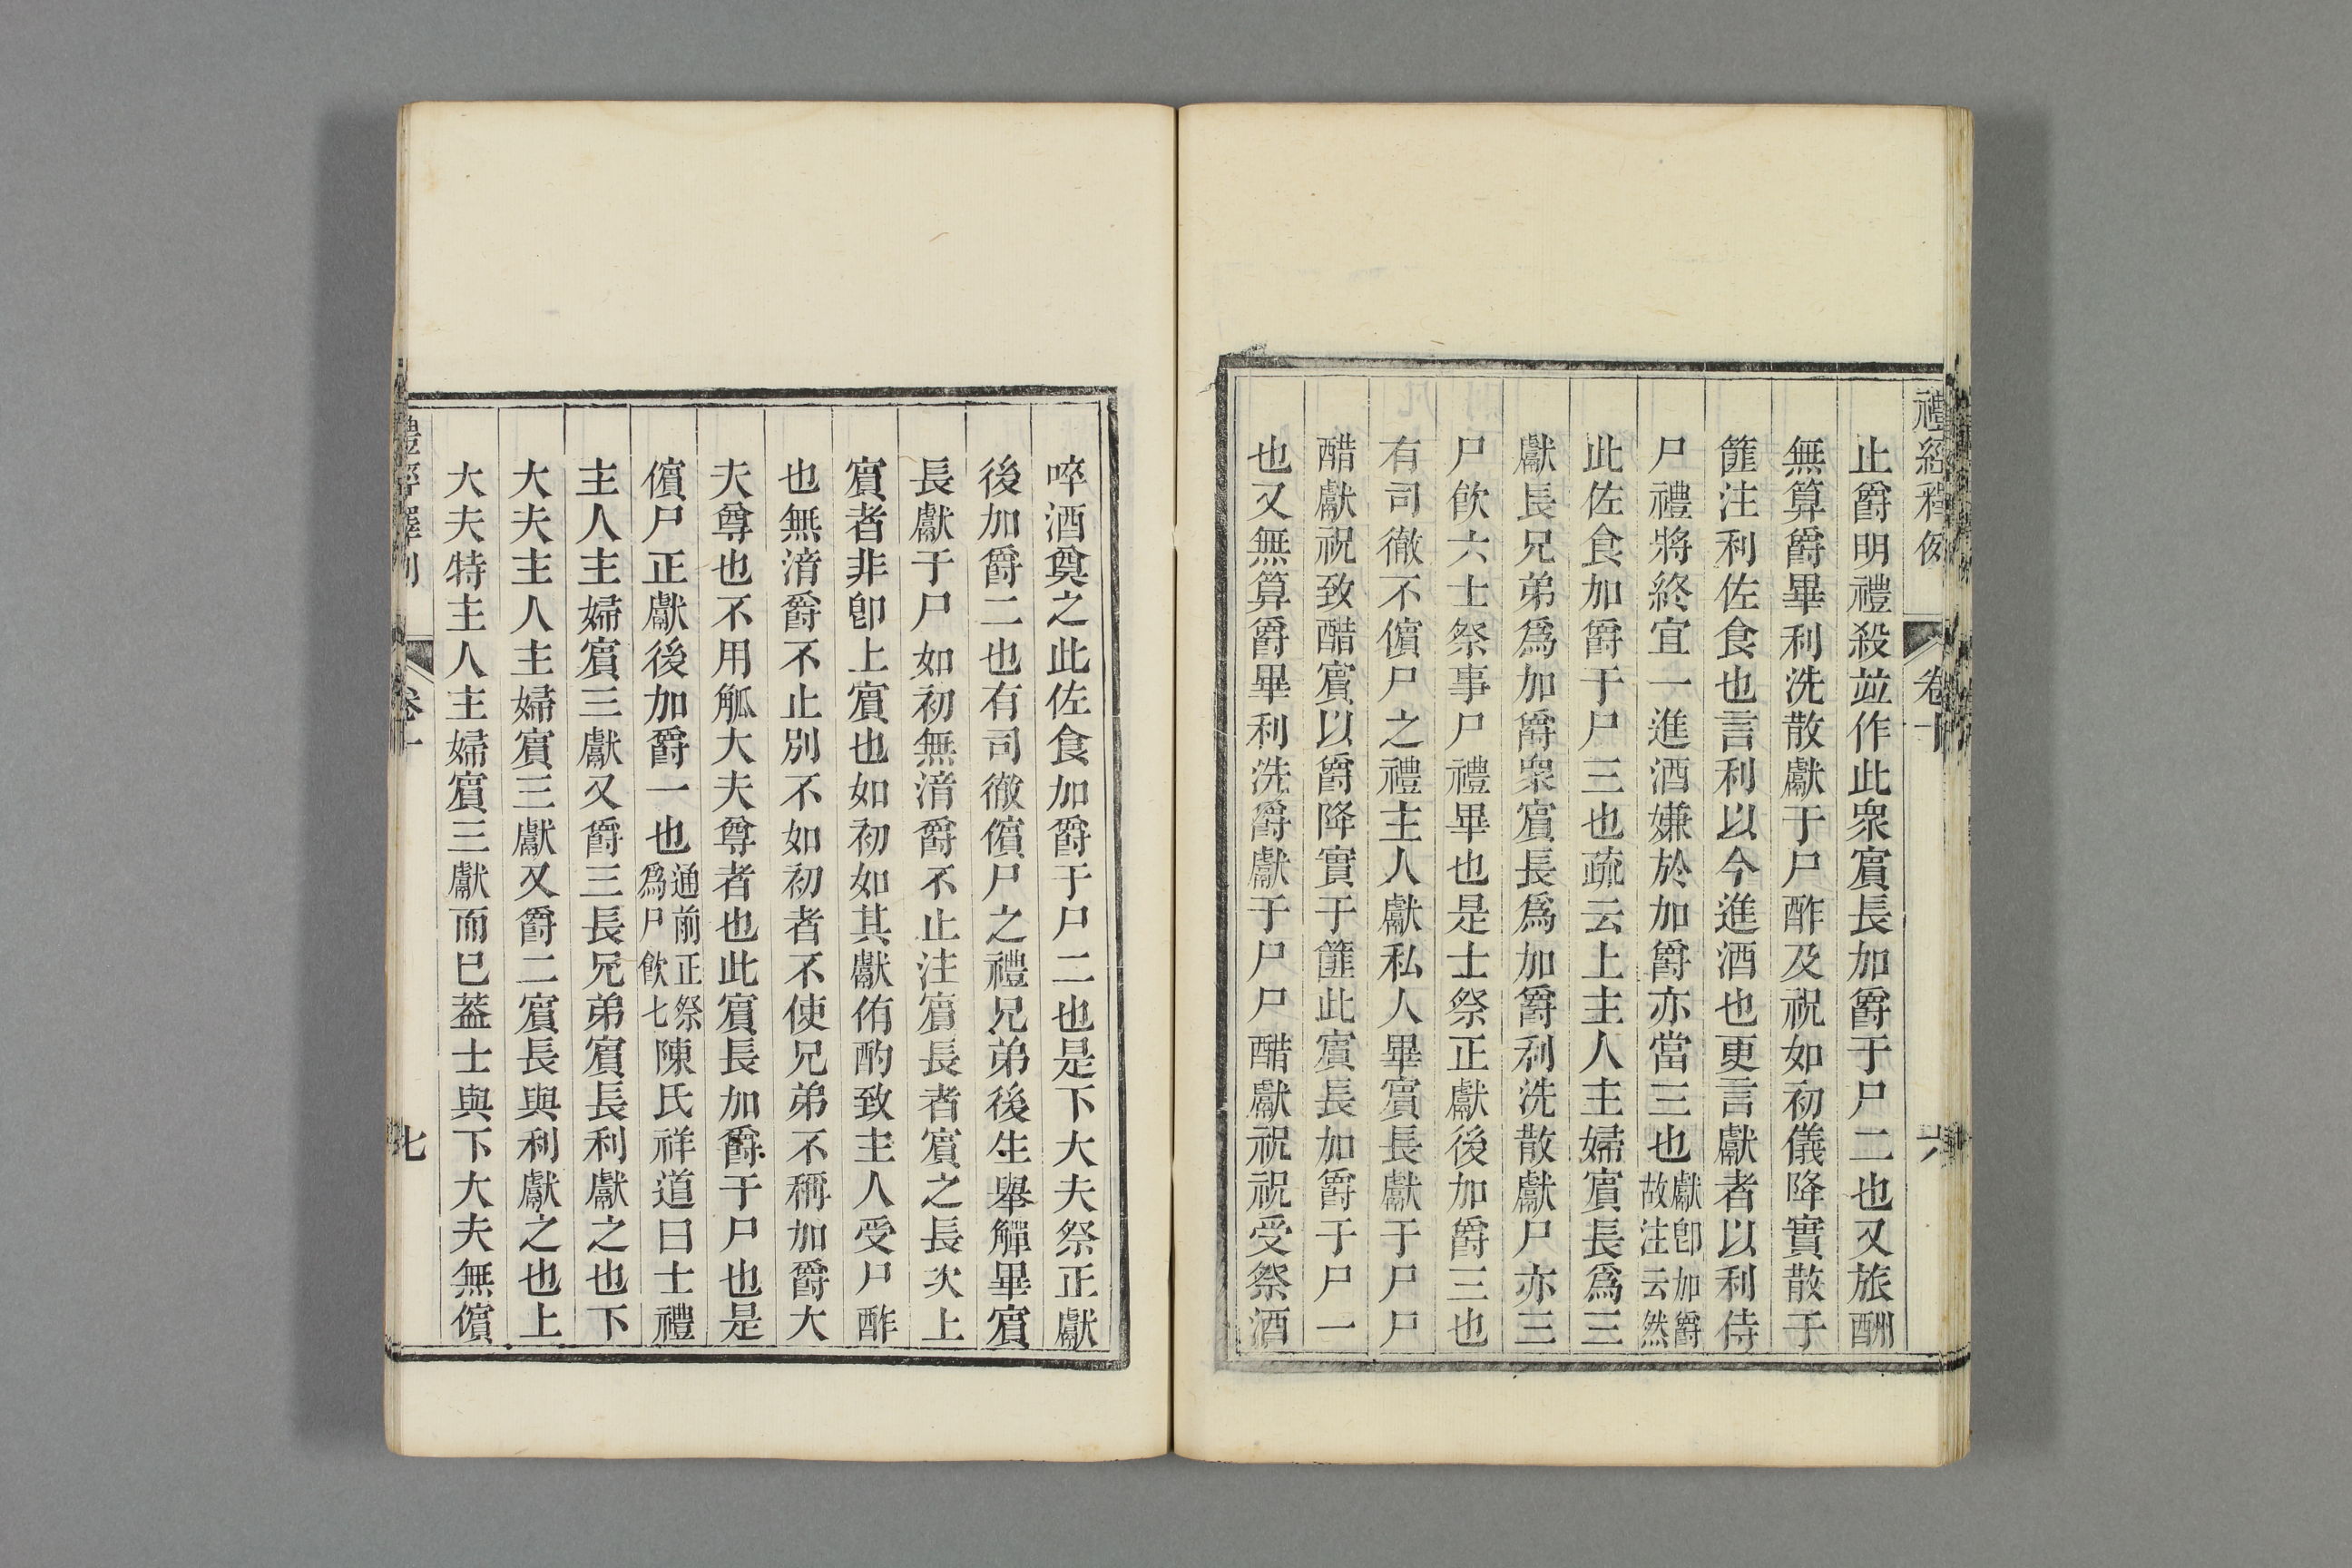 禮經釋例
卷十
六
止爵明禮殺並作此衆賓長加爵于尸二也又旅酬
無算爵畢利洗散獻于尸酢及祝如初儀降實散于
篚注利佐食也言利以今進酒也更言獻者以利侍
尸禮將終宜一進酒嫌於加爵亦當三也獻卽加爵故注云然
此佐食加爵于尸三也疏云上主人主婦賓長爲三
獻長兄弟爲加爵衆賓長爲加爵利洗散獻尸亦三
尸飲六士祭事尸禮畢也是士祭正獻後加爵三也
有司徹不儐尸之禮主人獻私人畢賓長獻于尸尸
醋獻祝致醋賓以爵降實于篚此賓長加爵于尸一
也又無算爵畢利洗爵獻于尸尸醋獻祝祝受祭酒
啐酒奠之此佐食加爵于尸二也是下大夫祭正獻
後加爵二也有司徹儐尸之禮兄弟後生舉觶畢賓
長獻于尸如初無湇爵不止注賓長者賓之長次上
賓者非卽上賓也如初如其獻侑酌致主人受尸酢
也無湇爵不止別不如初者不使兄弟不稱加爵大
夫尊也不用觚大夫尊者也此賓長加爵于尸也是
儐尸正獻後加爵一也通前正祭爲尸飲七陳氏祥道曰士禮
主人主婦賓三獻又爵三長兄弟賓長利獻之也下
大夫主人主婦賓三獻又爵二賓長與利獻之也上
大夫特主人主婦賓三獻而巳葢士與下大夫無儐
禮經釋例
卷十
七